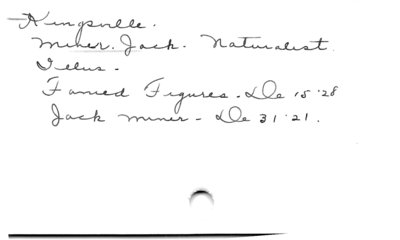 Kingsville.
Miner. Jack. Naturalist
Illus.
Famed Figures. De 15 '28
Jack Miner - De 31 '21.